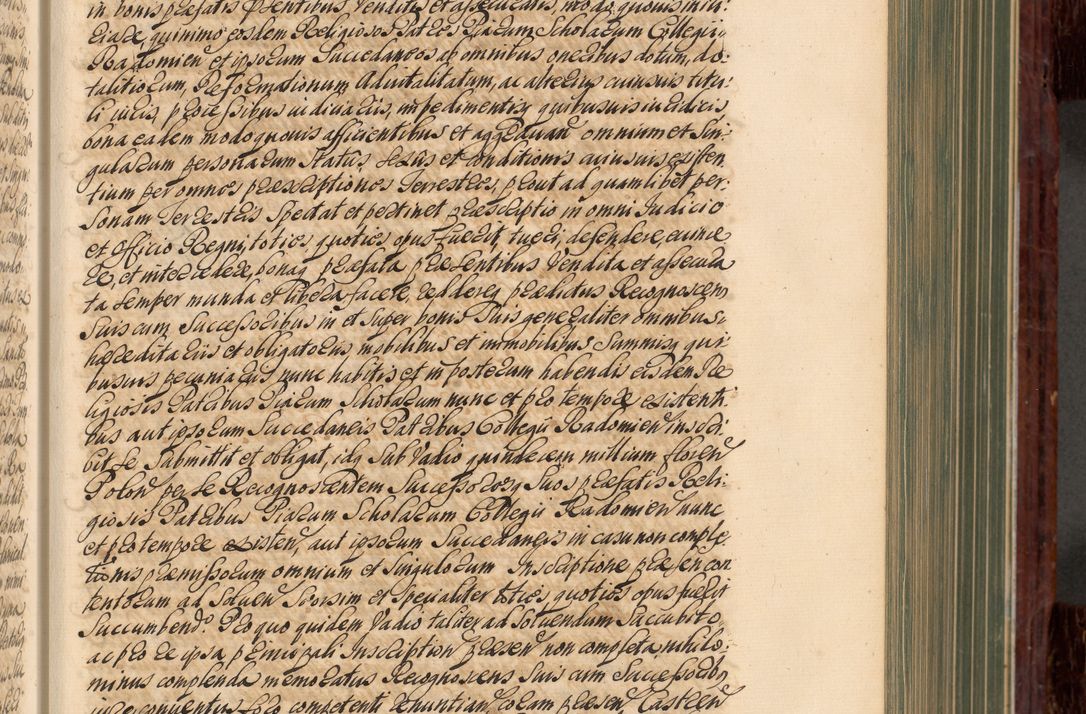 in bonis praefatis praesentibus Venditis et assecuratis, modo quovis inju-
riare, quinimo eosdem Religiosos Patres Piarum Scholarum Collegii
Radomien et ipsorum Succedaneos ab omnibus oneribus dotum, do-
talitiorum, Reformationum Advitalitatum, ac alterius cuiusvis titu-
li iuris, processibus iudiciariis, impedimentisq quibusvis iuridicis
bona eadem modo quovis afficientibus et aggravan omnium et Sin-
gularum personarum Status Sexus et Conditionis cuiusvis existen
tium per omnes praescriptiones Terrestres, prout ad quamlibet per-
sonam Terrestris Spectat et pertinet praescriptio in omni Iudicio
et Officio Regni, toties quoties opus fuerit, tueri, defendere, evince
re, et intercedere, bonaq praefata praesentibus Vendita et assecura
ta Semper munda et libera facere, reddereq praedictus Recognoscens
Suis cum Successoribus in et Super bonis Suis generaliter omnibus
haereditariis et obligatoriis mobilibus et immobilibus Summisq qui-
busvis pecuniariis nunc habitis et in posterum habendis eisdem Re
ligiosis Patribus Piarum Scholarum nunc et pro tempore existenti
bus aut ipsorum Succedaneis Patribus Collegii Radomien inscri-
bit Se Submittit et obligat, idq Sub Vadio quindecem millium floren
Polon per Se Recognoscentem Successoresq Suos praefatis Reli-
giosis Patribus Piarum Scholarum Collegii Radomien nunc
et pro tempore existen, aut ipsorum Succedaneis in casu non comple
tionis praemissorum omnium et Singulorum Inscriptione praesen con
tentorum ad Solven Seorsim et Specialiter toties quoties opus fuerit
Succumbend. Pro quo quidem Vadio taliter ad Solvendum Succubito,
ac pro re ipsa principali Inscription praesen non completa, nihilo-
minus complenda memoratus Recognoscens Suis cum Successorib
iure conventus foro competenti